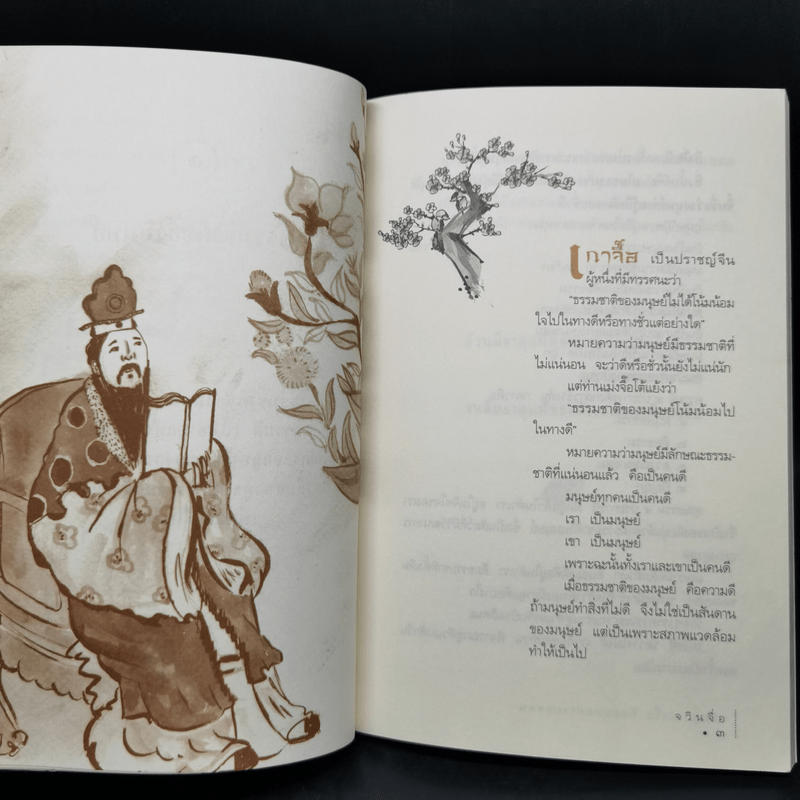 เกาจื๊อ เป็นปราชญ์จีน
ผู้หนึ่งที่มีทรรศนะว่า
"ธรรมชาติของมนุษย์ไม่ได้โน้มน้อม
ใจไปในทางดีหรือทางชั่วแต่อย่างใด"
หมายความว่ามนุษย์มีธรรมชาติที่
ไม่แน่นอน จะว่าดีหรือชั่วนั้นยังไม่แน่นัก
แต่ท่านเมงจื๊อโต้แย้งว่า
"ธรรมชาติของมนุษย์โน้มน้อมไป
ในทางดี"
หมายความว่ามนุษย์มีลักษณะธรรม-
ชาติที่แน่นอนแล้ว คือเป็นคนดี
มนุษย์ทุกคนเป็นคนดี
เรา เป็นมนุษย์
เขา เป็นมนุษย์
เพราะฉะนั้นทั้งเราและเขาเป็นคนดี
เมื่อธรรมชาติของมนุษย์ คือความดี
ถ้ามนุษย์ทำสิ่งที่ไม่ดี จึงไม่ใช่เป็นสันดาน
ของมนุษย์ แต่เป็นเพราะสภาพแวดล้อม
ทำให้เป็นไป
จวินจื่อ
• ๓